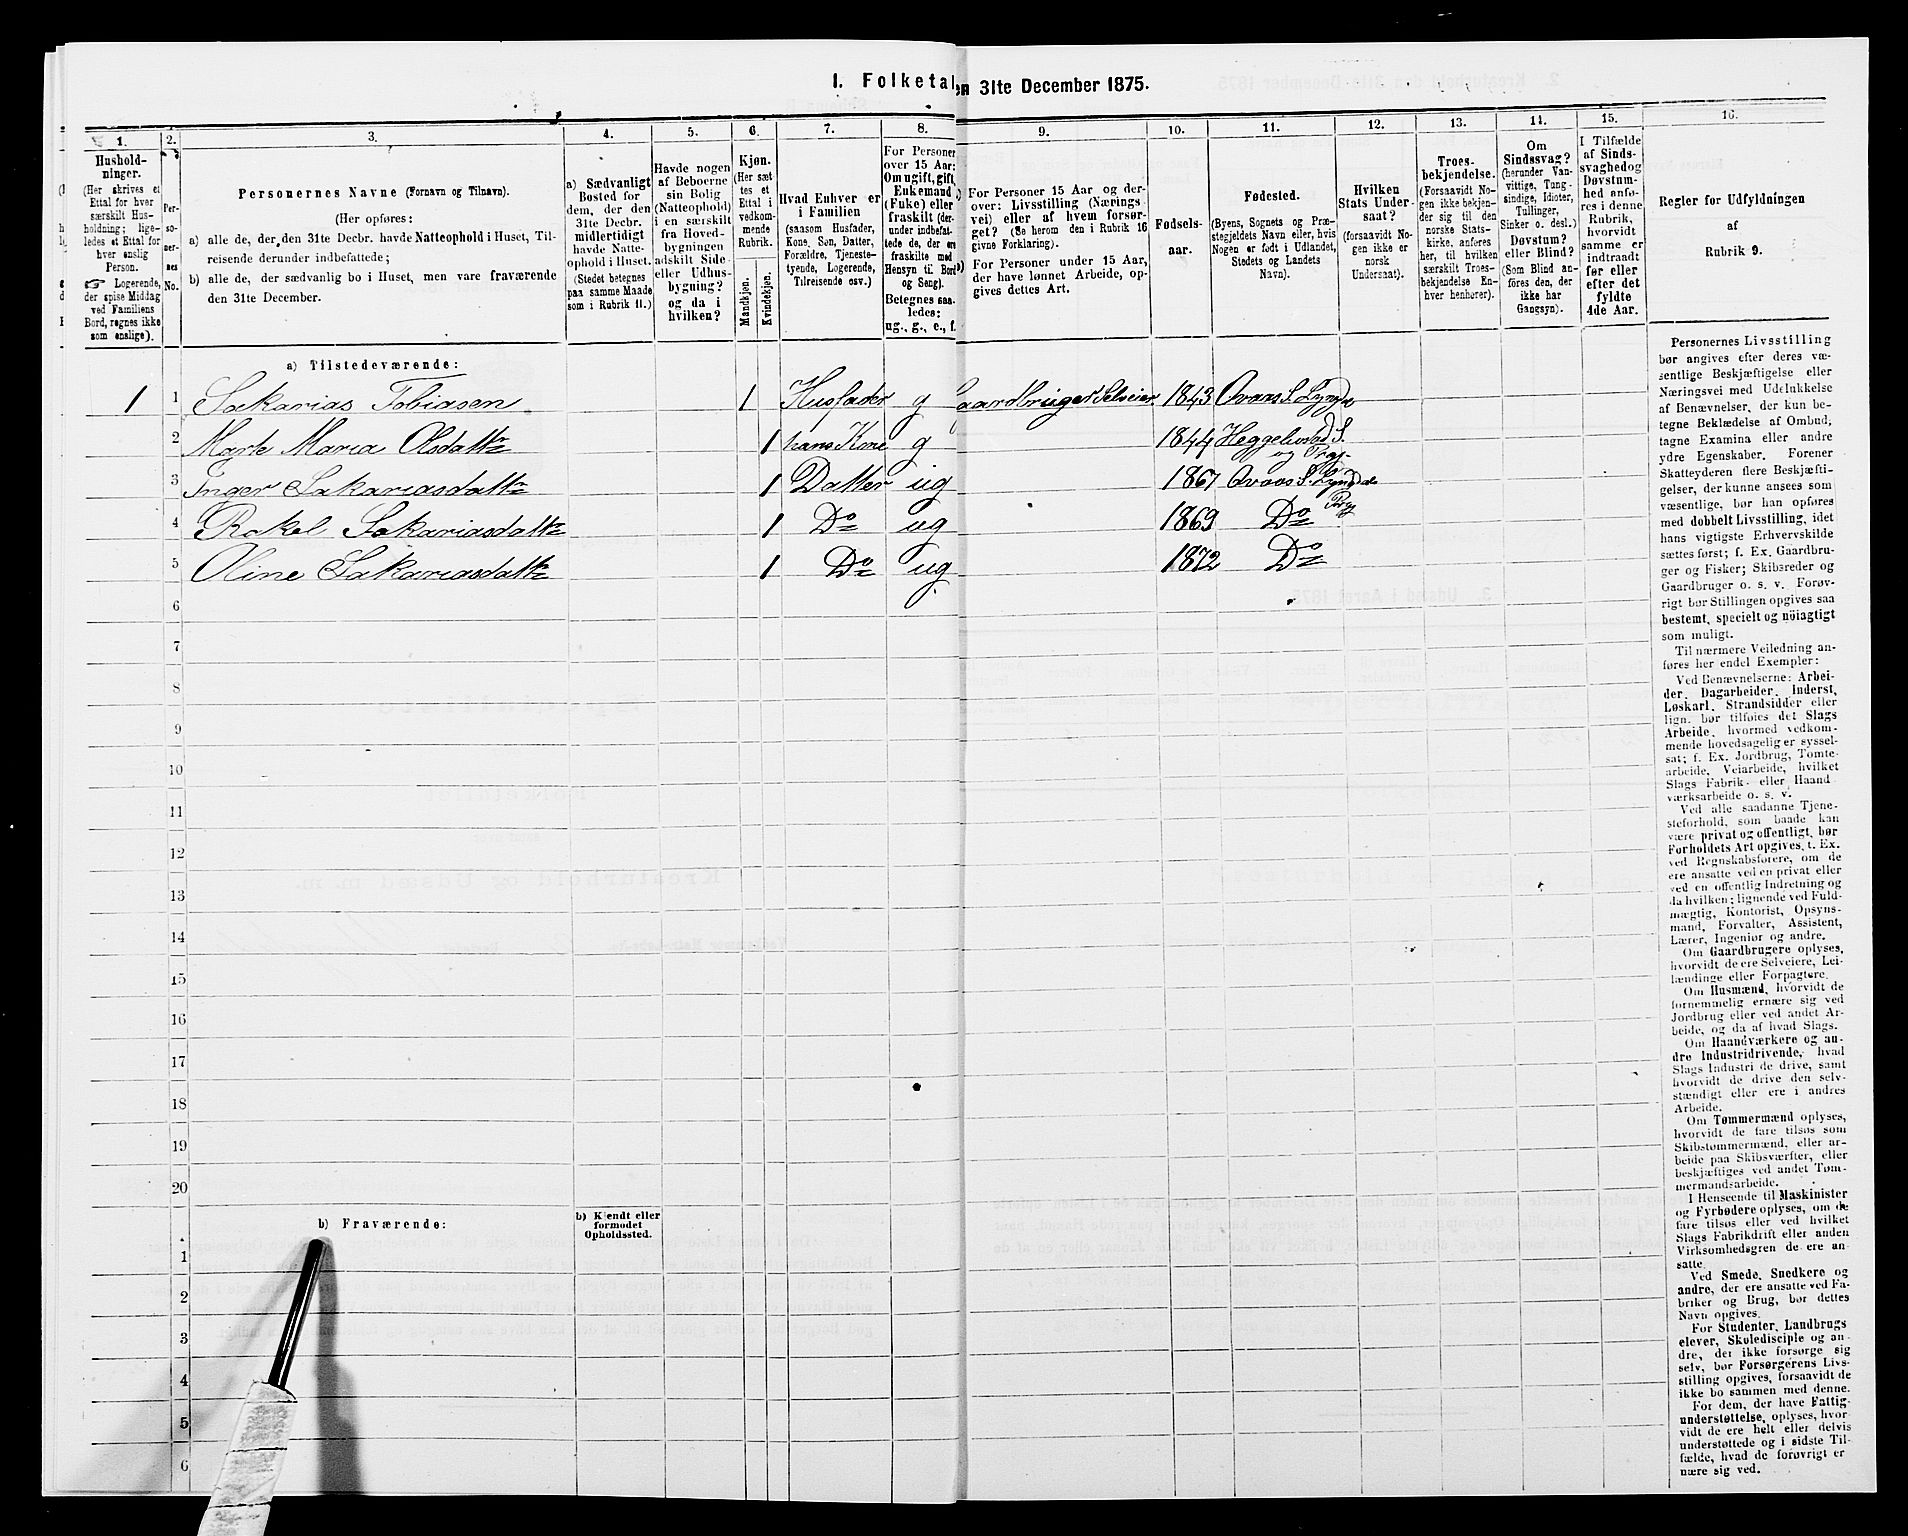 1. Folketal
en 31te December 1875.
1.
2.
3.
4.
5.
6.
7.
8.
9.
10.
11.
12.
13.
14.
15.
16.
Hushold-
ninger.
(Her skrives et
Ettal for hver
særskilt Hus-
holdning; lige-
ledes et Ettal for
hver enslig
Person.
☞ Logerende,
der spise Middag
ved Familiens
Bord, regnes ikke
som enslige).
Per-
so-
ner-
nes
No.
Personernes Navne (Fornavn og Tilnavn).
(Her opføres:
a) alle de, der den 31te Decbr. havde Natteophold i Huset, Til-
reisende derunder indbefattede;
b) alle de, der sædvanlig bo i Huset, men vare fraværende
den 31te December.
a) Sædvanligt
Bosted for
dem, der den
31te Decbr.
midlertidigt
havde Natte-
ophold i Huset.
(Stedet betegnes
paa samme Maade
som i Rubrik 11.)
Havde nogen
af Beboerne
sin Bolig
(Natteophold)
i en særskilt
fra Hoved-
bygningen
adskilt Side-
eller Udhus-
bygning?
og da i
hvilken?
Kjøn.
(Her sæt-
tes et
Ettal i
vedkom-
mende
Rubrik.
Mandkjøn.
Kvindekjøn.
Hvad Enhver er
i Familien
(saasom Husfader,
Kone, Søn, Datter,
Forældre, Tjeneste-
tyende, Logerende,
Tilreisende osv.)
For Personer
over 15 Aar:
Om ugift, gift,
Enkemand
(Enke) eller
fraskilt (der-
under indbefat-
tede de, der ere
fraskilte med
Hensyn til Bord
og Seng).
Betegnes saa-
ledes:
ug., g., e., f.
For Personer 15 Aar og der-
over: Livsstilling (Nærings-
vei) eller af hvem forsør-
get? (Se herom den i Rubrik 16
givne Forklaring).
For Personer under 15 Aar,
der have lønnet Arbeide, op-
gives dettes Art.
Fødsels-
aar.
Fødested.
(Byens, Sognets og Præ-
stegjeldets Navn eller, hvis
Nogen er født i Udlandet,
Stedets og Landets
Navn).
Hvilken
Stats Under-
saat?
(forsaavidt No-
gen ikke er
norsk
Undersaat).
Troes-
bekjendelse.
(Forsaavidt No-
gen ikke bekjen-
der sig til den
norske Stats-
kirke, anføres
her, til hvilken
særskilt Troes-
bekjendelse En-
hver henhører).
Om
Sindssvag?
(herunder Van-
vittige, Tung-
sindige, Idioter,
Tullinger,
Sinker o. desl.)
Døvstum?
eller Blind?
(Som Blind an-
føres den, der
ikke har
Gangsyn).
I Tilfælde
af Sinds-
svaghed og
Døvstum-
hed anfø-
res i denne
Rubrik,
hvorvidt
samme er
indtraadt
før eller
efter det
fyldte
4de Aar.
Regler for Udfyldningen
af
Rubrik 9.
a) Tilstedeværende:
1 1 Sakarias Tobiasen 1 Husfader g Gaardbruger Selveier 1843
2 Marte Maria Olsdatter 1 hans Kone g 1844
3 Inger Sakariasdatter 1 Datter ug 1867
4 Rakel Sakariasdatter 1 Do ug 1869 Do
5 Oline Sakariasdatter 1 Do ug 1872 Do
6
7
8
9
10
11
12
13
14
15
16
17
18
19
20
b) Fraværende:
b) Kjendt eller
formodet
Opholdssted.
1
2
3
4
5
6
Personernes Livsstilling
bør angives efter deres væ-
sentlige Beskjæftigelse eller
Næringsvei med Udelukkelse
af Benævnelser, der kun be-
tegne Beklædelse af Ombud,
tagne Examina eller andre
ydre Egenskaber. Forener
Skatteyderen flere Beskjæfti-
gelser, der kunne ansees som
væsentlige, bør han opføres
med dobbelt Livsstilling, idet
hans vigtigste Erhvervskilde
sættes først; f. Ex. Gaardbru-
ger og Fisker; Skibsreder og
Gaardbruger o. s. v. Forøv-
rigt bør Stillingen opgives saa
bestemt, specielt og nöiagtigt
som muligt.
Til nærmere Veiledning an-
føres her endel Exempler:
Ved Benævnelserne: Arbei-
der, Dagarbeider, Inderst,
Løskarl, Strandsidder eller
lign. bør tilføies det Slags
Arbeide, hvormed vedkom-
mende hovedsagelig er syssel-
sat; f. Ex. Jordbrug, Tomte-
arbeide, Veiarbeide, hvilket
Slags Fabrik- eller Haand-
værksarbeide o. s. v.
Ved alle saadanne Tjene-
steforhold, som baade kan
være privat og offentligt, bør
Forholdets Art opgives, t. Ex.
ved Regnskabsførere, om de
ere ansatte ved en privat eller
ved en offentlig Indretning og
da hvilken; lignende ved Fuld-
mægtig, Kontorist, Opsyns-
mand, Forvalter, Assistent,
Lærer, Ingeniør og andre.
Om Gaardbrugere oplyses,
hvorvidt de ere Selveiere, Lei-
lændinge eller Forpagtere.
Om Husmænd, hvorvidt de
fornemmelig ernære sig ved
Jordbrug eller ved andet Ar-
beide, og da af hvad Slags.
Om Haandværkere og an-
dre Industridrivende, hvad
Slags Industri de drive, samt
hvorvidt de drive den selv-
stændigt eller ere i andres
Arbeide.
Om Tømmermænd oplyses,
hvorvidt de fare tilsøs som
Skibstømmermænd, eller ar-
beide paa Skibsværfter, eller
beskjæftiges ved andet Tøm-
mermandsarbeide.
I Henseende til Maskinister
og Fyrbødere oplyses, om de
fare tilsøs eller ved hvilket
Slags Fabrikdrift eller anden
Virksomhedsgren de ere an-
satte.
Ved Smede, Snedkere og
andre, der ere ansatte ved Fa-
briker og Brug, bør dettes
Navn opgives.
For Studenter, Landbrugs-
elever, Skoledisciple og an-
dre, der ikke forsørge sig
selv, bør Forsørgerens Livs-
stilling opgives, forsaavidt de
ikke bo sammen med denne.
For dem, der have Fattig-
understøttelse, oplyses, hvor-
vidt de ere helt eller delvis
understøttede og i sidste Til-
fælde, hvad de forøvrigt er-
nære sig ved.